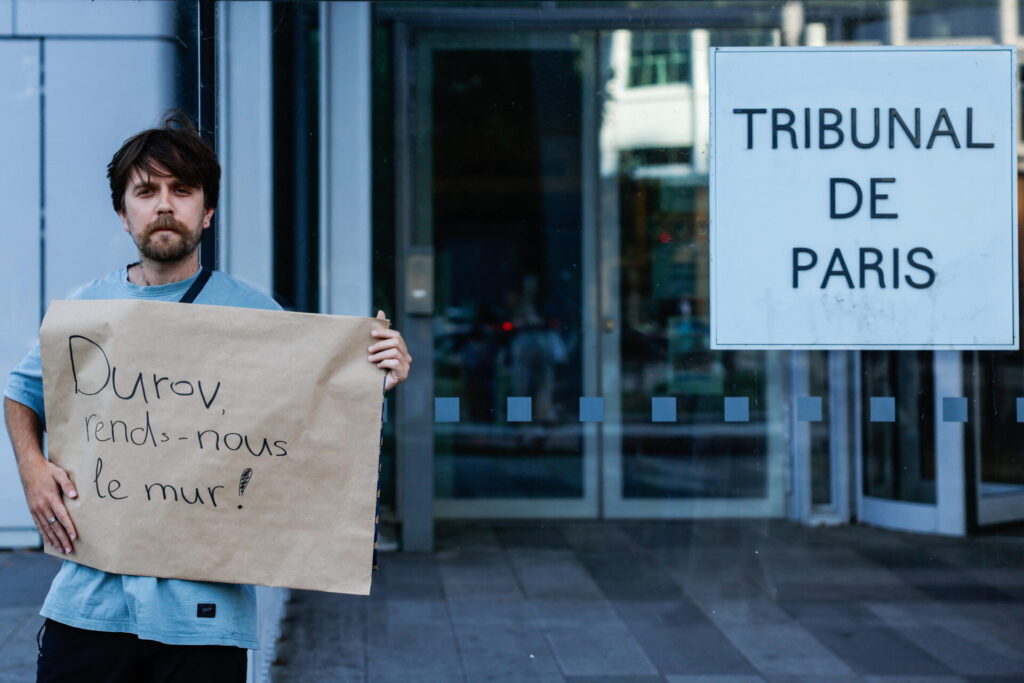 Durov,
rends-nous
le mur!
TRIBUNAL
DE
PARIS